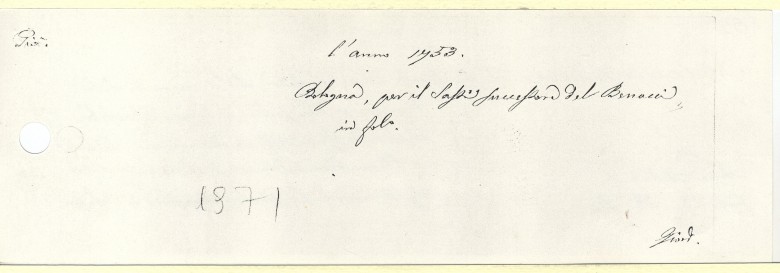 l'anno 1753.
Bologna, per il Sassi successore del Benacci
in fol.º
1371